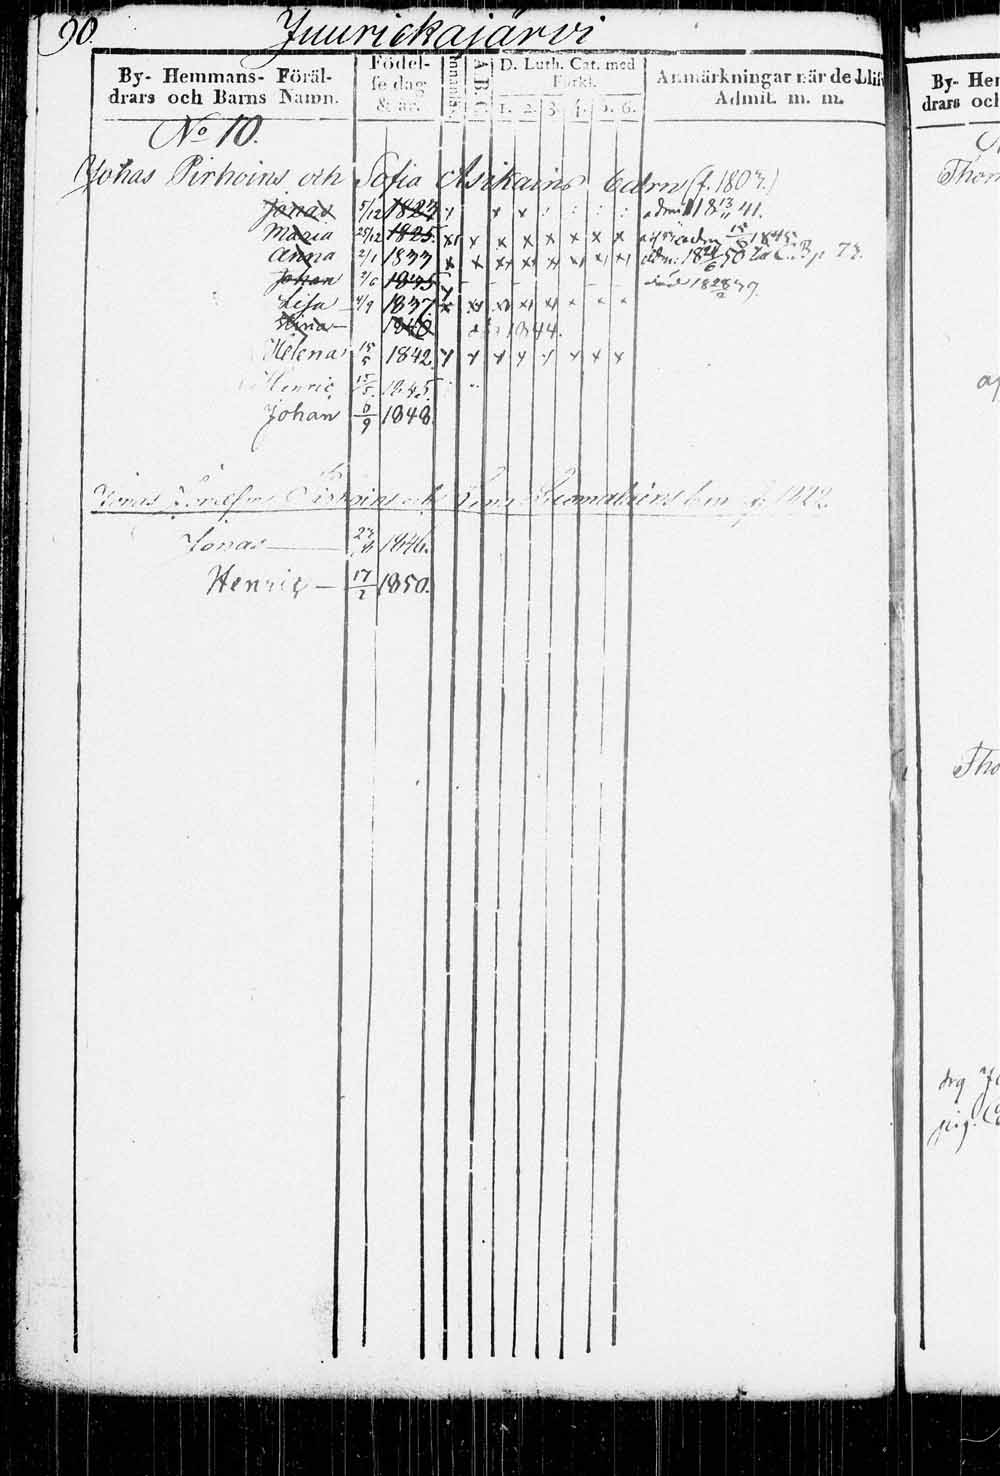 90.
Juurickajärvi
By- Hemmans- Föräldrars och Barns Namn.
Födelse dag & år.
A B C
D. Luth. Cat. med Förkl.
1. 2. 3. 4. 5. 6.
Anmärkningar när de blifv
Admit. m. m.
No 10.
Johas Pirhoins och Sofia Asikains barn (f. 1803.)
Jonas 5/12 1823 adm 18 13/11 41.
Maria 25/12 1825. adm 15/6 1845
Anna 2/1 1833 adm: 18 24/6 50 p 73.
Johan 2/6 1835 död 18 28/2 39.
Lisa 4/9 1837.
Stina 1840 1844.
Helena 15/5 1842
Henric 15/5 1845.
Johan 8/9 1848.
Jonas Pirhoins och barn f. 1822.
Jonas 1846.
Henric 17/2 1850.
By- Hem
drars och
Thom
Tho
drg
pig.